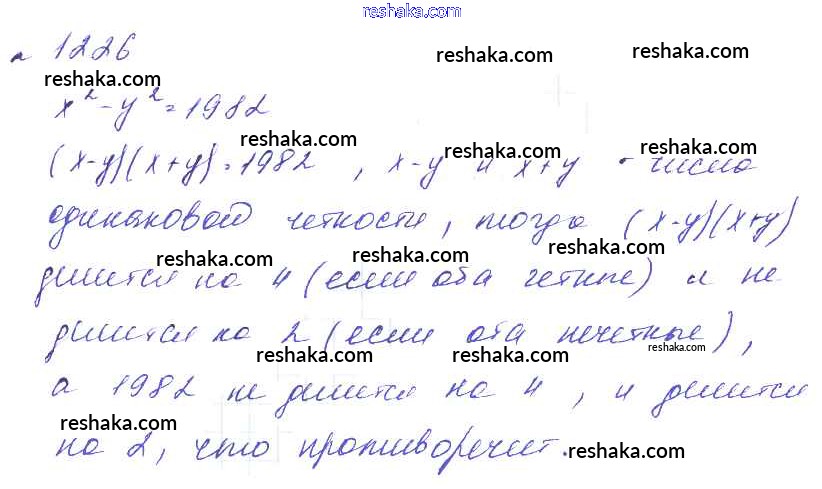 reshaka.com
№ 1226
reshaka.com
reshaka.com reshaka.com
x² - y² = 1982
reshaka.com reshaka.com reshaka.com
(x-y)(x+y) = 1982, x-y и x+y - числа
одинаковой четности, тогда (x-y)(x+y)
reshaka.com reshaka.com reshaka.com
делится на 4 (если оба четные) и не
делится на 2 (если оба нечетные),
reshaka.com reshaka.com reshaka.com
а 1982 не делится на 4, и делится
reshaka.com reshaka.com reshaka.com
на 2, что противоречит.